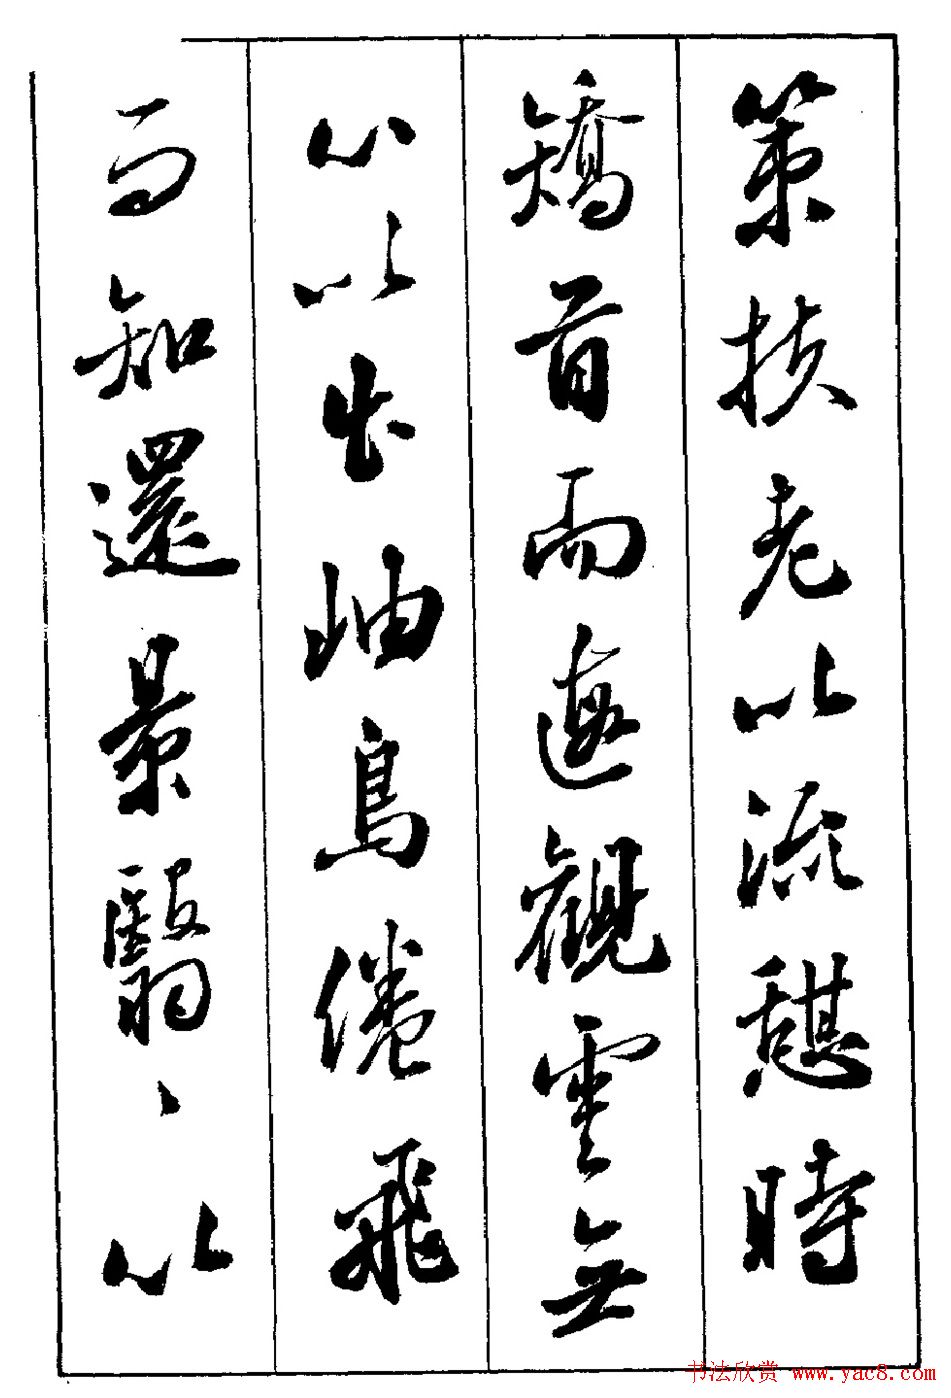 策扶老以流憩時
矯首而遐觀雲無
心以出岫鳥倦飛
而知還景翳、以
书法欣赏 www.yac8.com